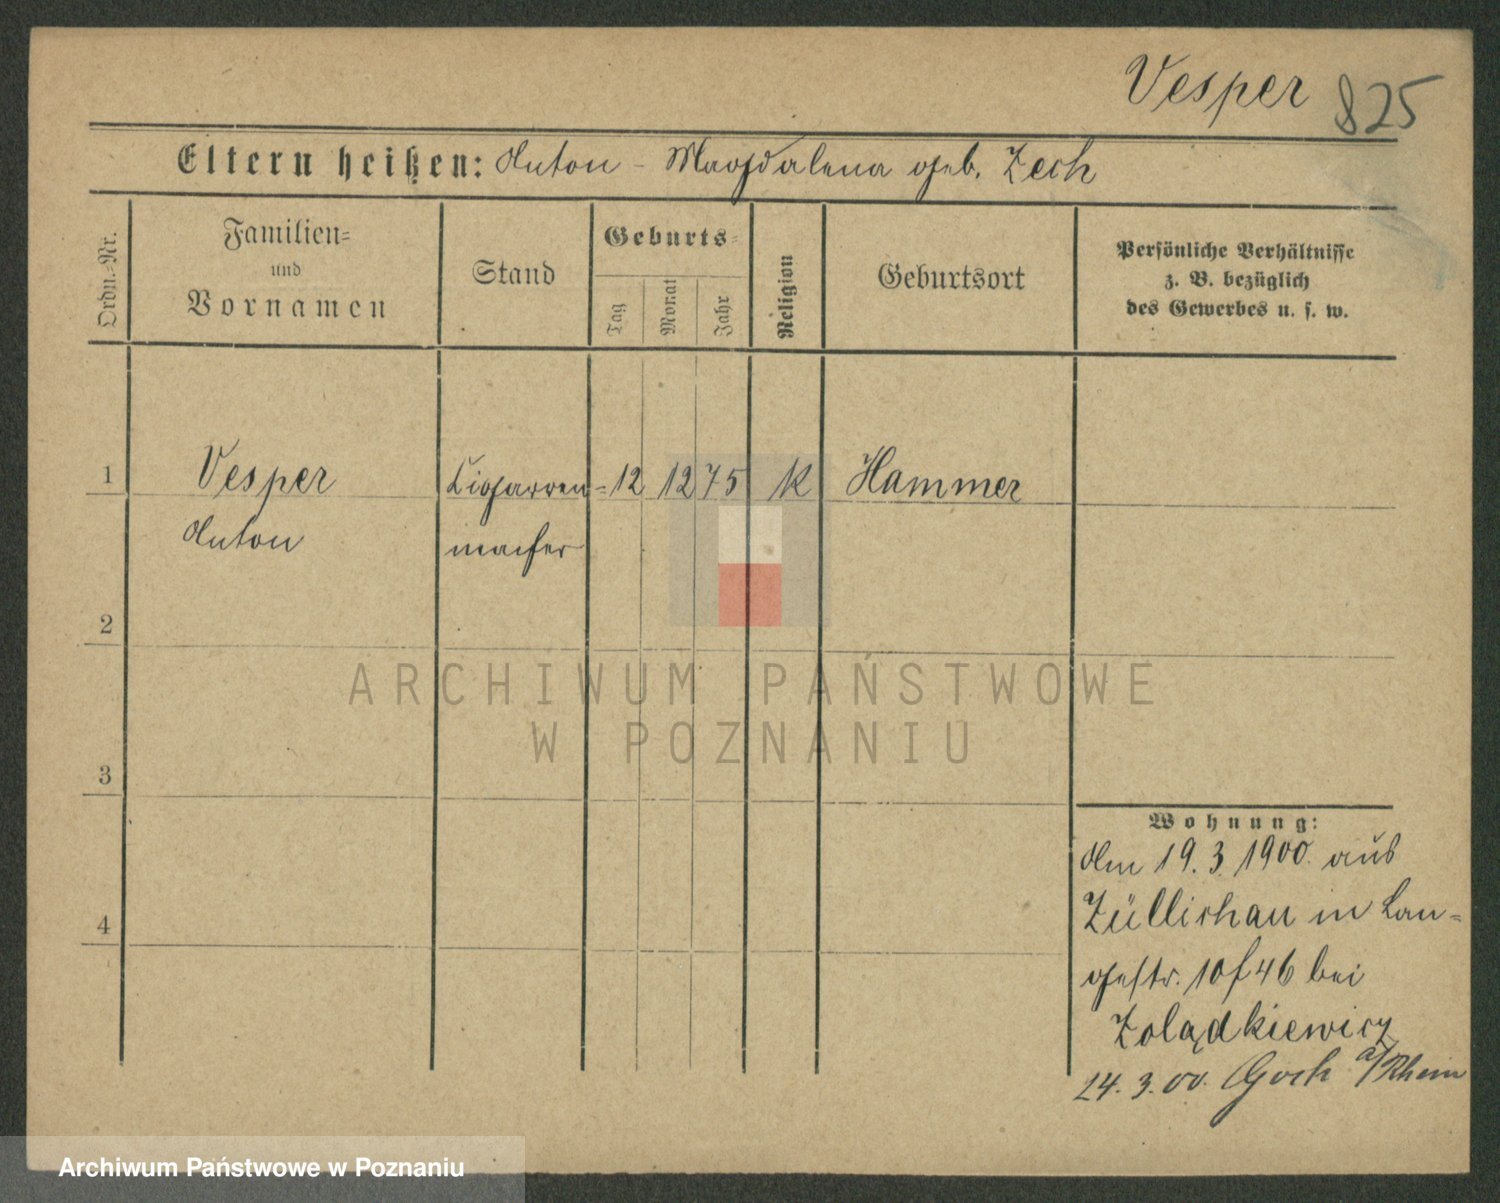 Vesper 825
Eltern heißen: Anton - Magdalena geb. Zech
Ordn.-Nr.
Familien-
und
Vornamen
Stand
Geburts-
Tag
Monat
Jahr
Religion
Geburtsort
Persönliche Verhältnisse
z. B. bezüglich
des Gewerbes u. s. w.
1 Vesper Cigarren- 12 12 75 K Hammer
Anton macher
2
3
4
Wohnung:
Am 19.3.1900. aus
Züllichau in Lan-
gestr. 10 f 46 bei
Zolądkiewicz
24.3.00. Goch a/Rhein
ARCHIWUM PAŃSTWOWE
W POZNANIU
Archiwum Państwowe w Poznaniu